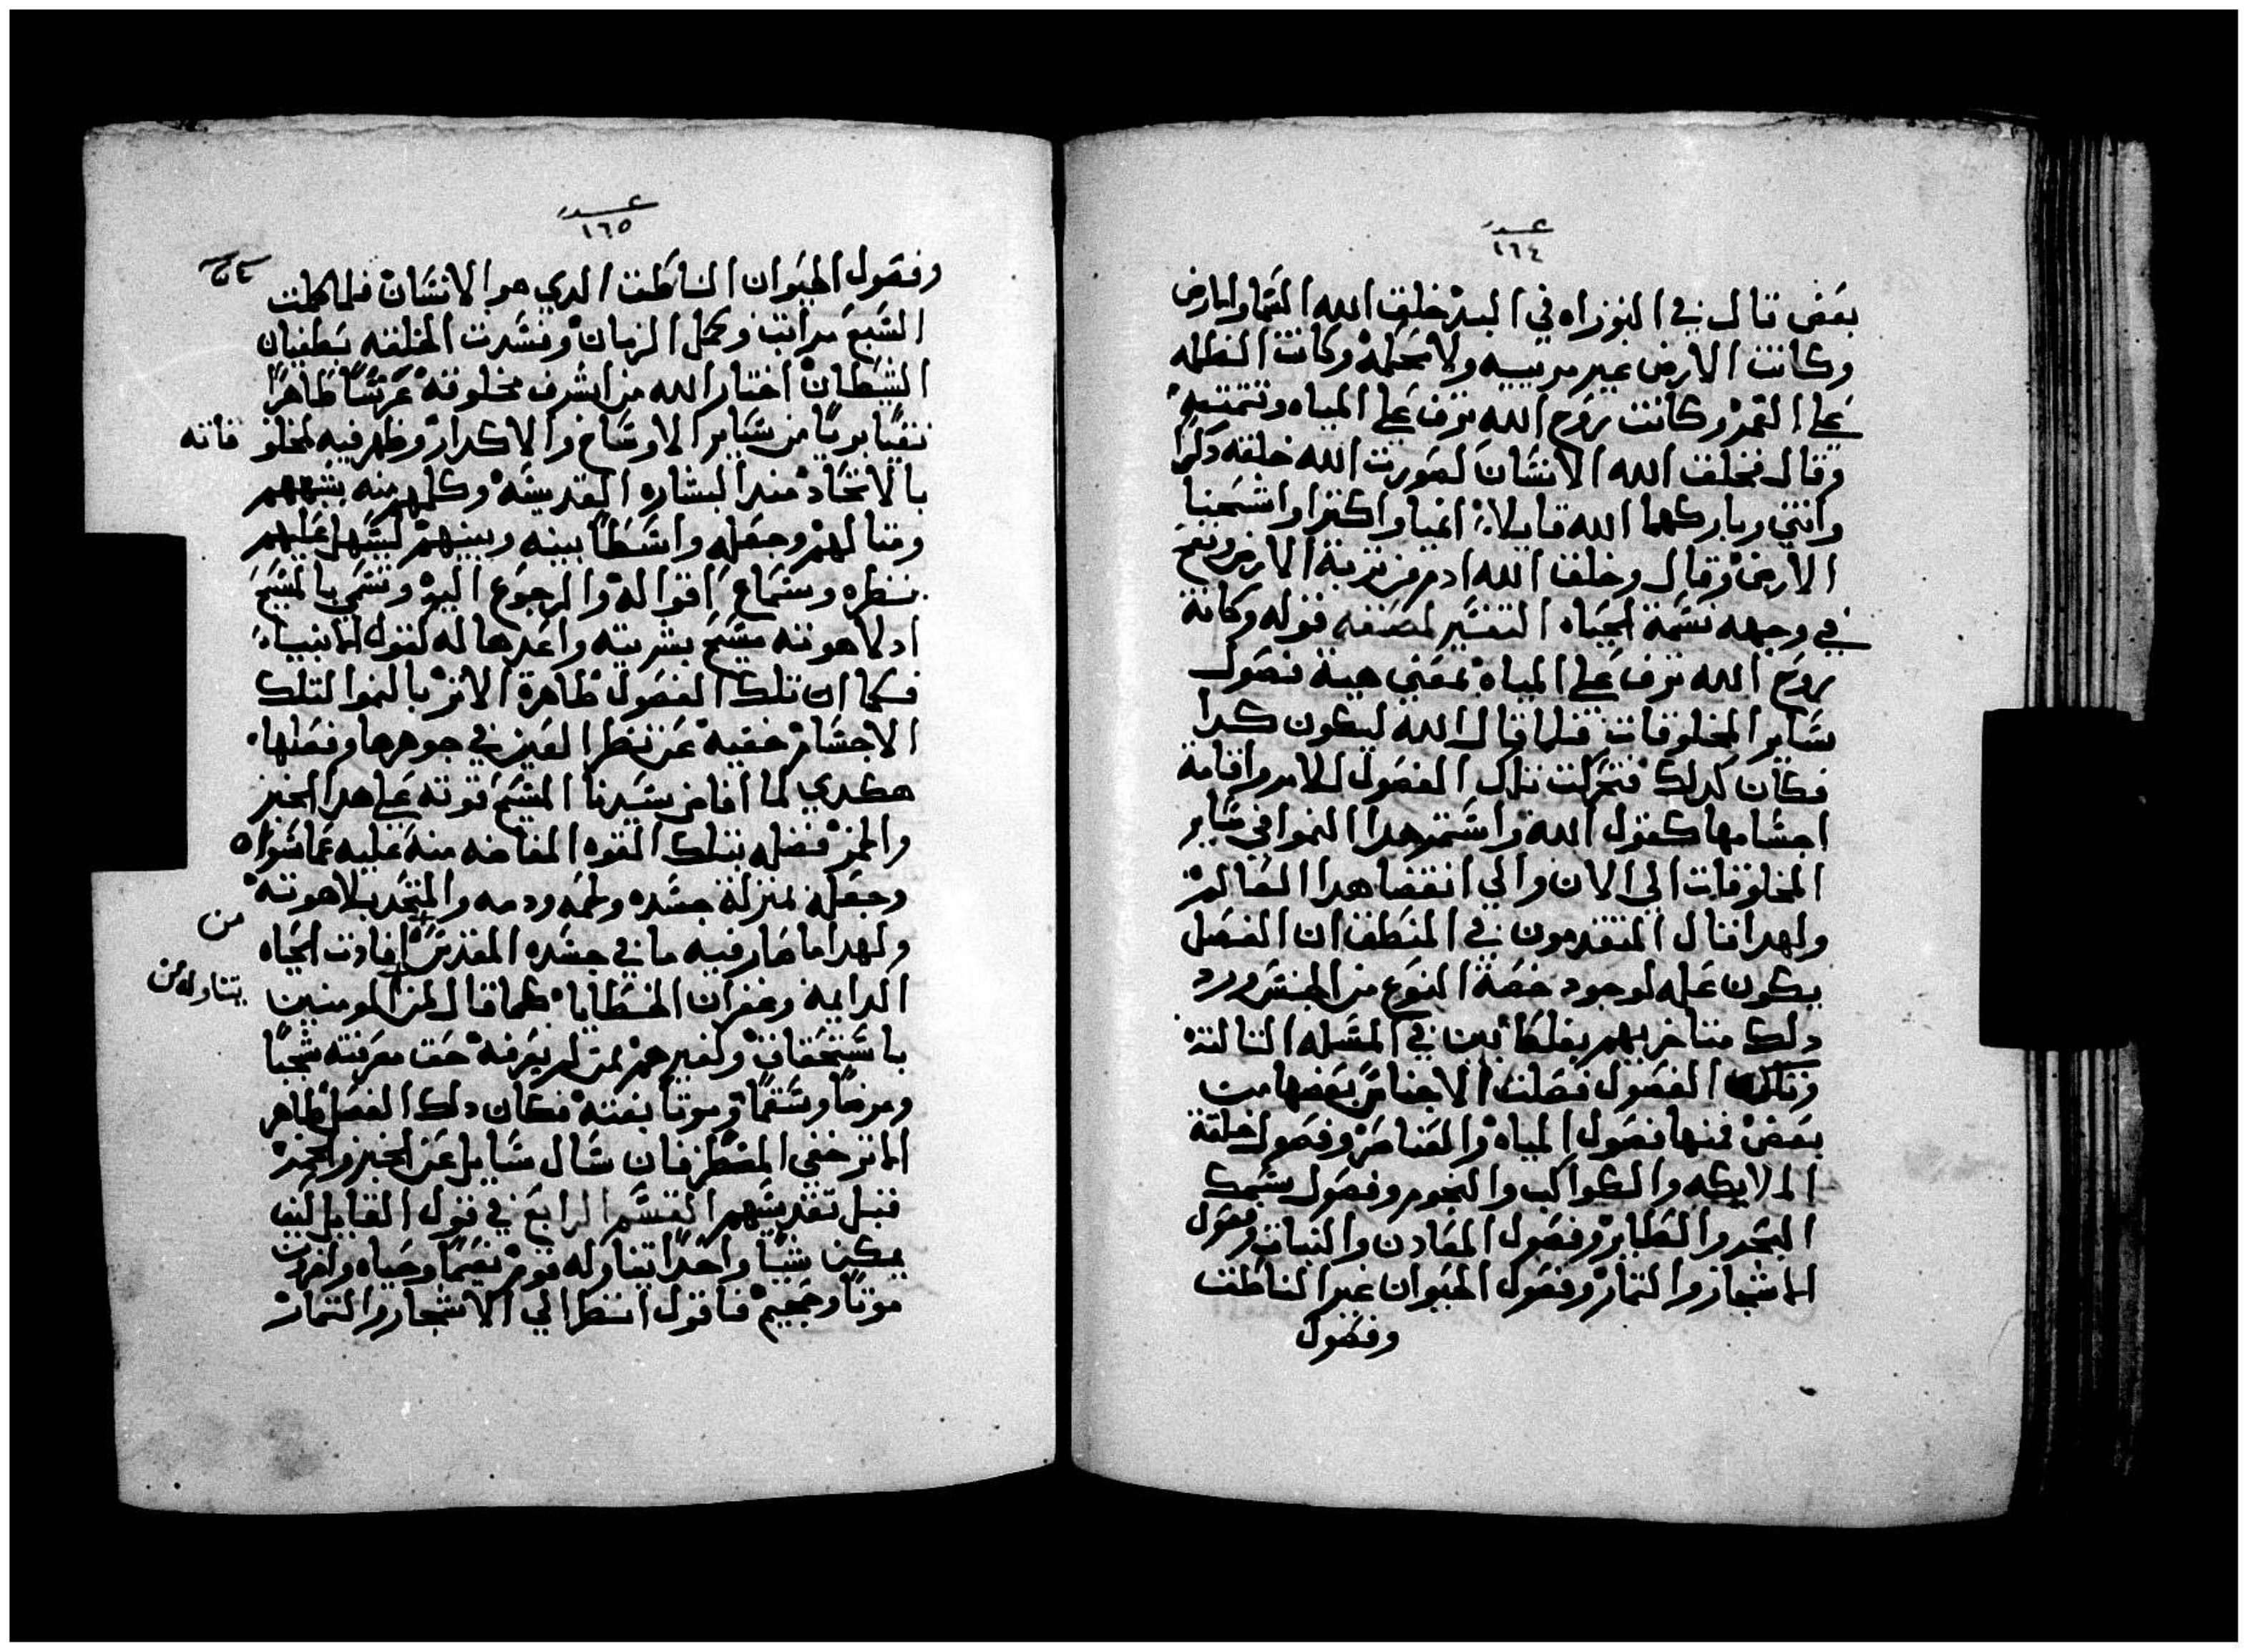 عدد
١٦٤
بعض قال في التوراه في البدء خلق الله السما والارض
وكانت الارض غير مرييه ولا مستكمله وكانت الظلمه
علي القمر وكانت روح الله ترف علي المياه وتتمته
وقال فخلق الله الانسان لصورت الله خلقه دكرا
وانتي وباركهما الله قايلا انميا واكترا واشحنا
الارض وقال وخلق الله ادم من تربة الارض ونفخ
في وجهه نسمة الحياه التفسير لمصنفه قوله وكانة
روح الله ترف علي المياه بمعني هية فصول
ساير المخلوقات فلما قال الله ليكون كدا
فكان كدلك فتحركت تلك الفصول للامر واقامة
اجسامها كقول الله واستمر هدا النموا في ساير
المخلوقات الي الان والي انقضا هدا العالم
ولهدا قال المتقدمون في المنطق ان الفصل
يكون عله لوجود خصة النوع من الجنس ورد
دلك متاخريهم بغلطا بين في المسله التالته
وتلك الفصول فصلت الاجناس بعضها من
بعض فمنها فصول المياه والعناصر وفصول خلقة
الملايكه والكواكب والنجوم وفصول سمك
البحر والطاير وفصول المعادن والنبات وفصول
الاشجار والتمار وفصول الحيوان غير الناطق
وفصول
عدد
١٦٥
وفصول الحيوان الناطق الدي هو الانسان فلما كملت
السبع مراتب وكمل الزمان وفسدت الخلقه بطغيان
الشيطان اختار الله من اشرف مخلوقته عرشا طاهرا
نقيا بريا من ساير الاوساخ والاكدار وظهر فيه لمخلو قاته
بالاتحاد مند البشاره المقدسه وكلمهم منه بشبههم
ومتالهم وجعله واسطا بينه وبينهم ليسهل عليهم
نظره وسماع اقواله والرجوع اليه وتسمي بالمسيح
اد لاهوته مسح بشريته واعدها له كقول الانبياء
فكما ان تلك الفصول ظاهرة الاتر بالنموا لتلك
الاجسام خفيه عن نظر العين في جوهرها وفعلها
هكدي لما افاض سيدنا المسيح قوته علي هدا الخبز
والخمر فضله بتلك القوه المفاضه منه عليه عما سواه
وجعله بمنزلة جسده ولحمه ودمه والمتحد بلاهوته
ولهدا ما صار فيه ما في جسده المقدس افادت الحياه
من
الدايمه وغفران الخطايا كما قال لمن المومنين
يتناوله من
باستحقاق ولغيرهم لمن لم يعرفه حق معرفته شجبا
ومرضا وسقما وموتا بغته فكان دلك الفصل ظاهر
الاتر خفي المنظر فان سال سايل عن الخبز والخمر
قبل تقديسهم القسم الرابع في قول القايل كيف
يمكن شيا واحدا تناوله قوم نعيما وحياه واخرين
موتا وجحيم فاقول انظر الي الاشجار والتمار